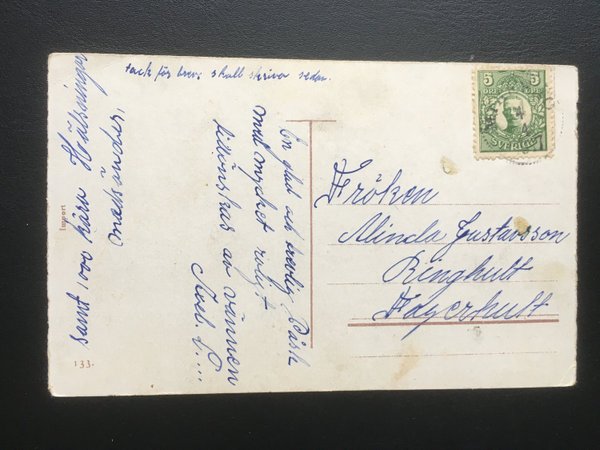 tack för brev; skall skriva sedan.
En glad och trevlig Påsk
med mycket roligt
tillönskas av vännen
Axel. C....
samt 1000 kära Hälsningar
Import
133.
5 5
ÖRE ÖRE
SVERIGE
Fröken
Alinda Gustavsson
Ringhult
Fagerhult